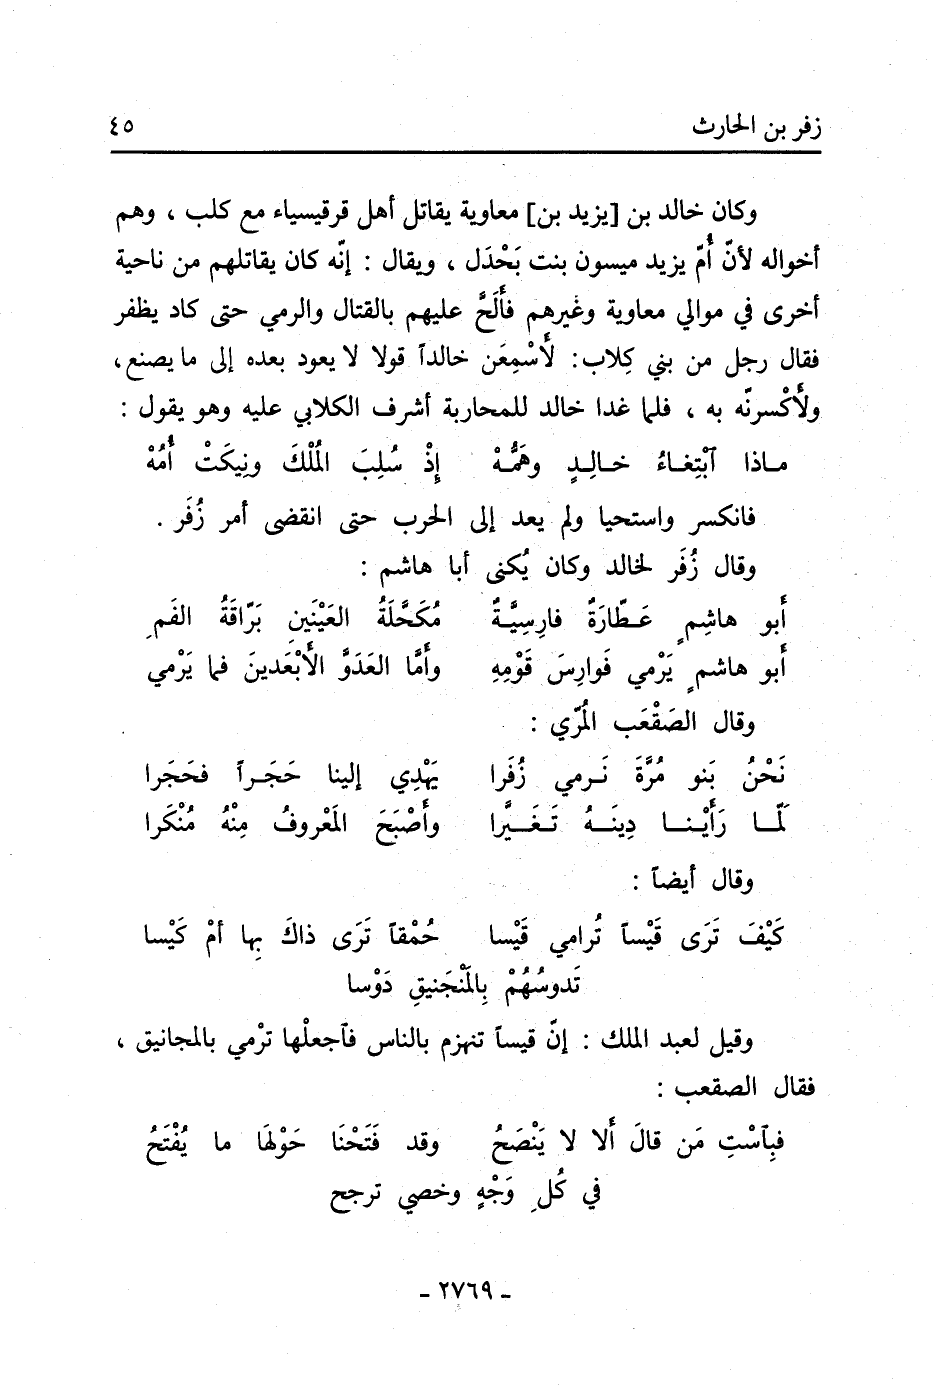 زفر بن الحارث ٤٥
وكان خالد بن [يزيد بن] معاوية يقاتل أهل قرقيسياء مع كلب ، وهم
أخواله لأنّ أُمّ يزيد ميسون بنت بَحْدَل ، ويقال : إنّه كان يقاتلهم من ناحية
أخرى في موالي معاوية وغيرهم فأَلَحَّ عليهم بالقتال والرمي حتى كاد يظفر
فقال رجل من بني كِلاب: لأَسْمِعَن خالداً قولا لا يعود بعده إلى ما يصنع،
ولأَكْسرنّه به ، فلما غدا خالد للمحاربة أشرف الكلابي عليه وهو يقول :
مـاذا ٱبْتِغـاءُ خـالِـدٍ وهَمُّـهْ إِذْ سُلِبَ المُلْكَ ونِيكَتْ أُمُهْ
فانكسر واستحيا ولم يعد إلى الحرب حتى انقضى أمر زُفَر .
وقال زُفَر لخالد وكان يُكنى أبا هاشم :
أَبو هاشِمٍ عَـطّارَةٌ فارِسِيَّـةٌ مُكَحَّلَةُ العَيْنَينِ بَرّاقَةُ الفَمِ
أَبو هاشمٍ يَرْمي فَوارِسَ قَوْمِهِ وأَمَّا العَدَوَّ الأَبْعَدينَ فما يَرْمي
وقال الصَقْعَب المُرّي :
نَحْنُ بَنو مُرَّةَ نَـرمي زُفَرا يَهْدِي إلينا حَجَـراً فحَجَرا
لَمّـا رَأَيْـنـا دِينَـهُ تَـغَـيَّرا وأَصْبَحَ المَعْروفُ مِنْهُ مُنْكَرا
وقال أيضاً :
كَيْفَ تَرَى قَيْساً تُرامي قَيْسا حُمْقاً تَرَى ذاكَ بِها أمْ كَيْسا
تَدوسُهُمْ بِالمَنْجَنيقِ دَوْسا
وقيل لعبد الملك : إنّ قيساً تنهزم بالناس فٱجعلْها ترْمي بالمجانيق ،
فقال الصقعب :
فبِٱسْتِ مَن قالَ أَلا لا يَنْصَحُ وقد فَتَحْنَا حَوْلهَا ما يُفْتَحُ
في كُلِ وَجْهٍ وخصي ترجح
- ٢٧٦٩ -